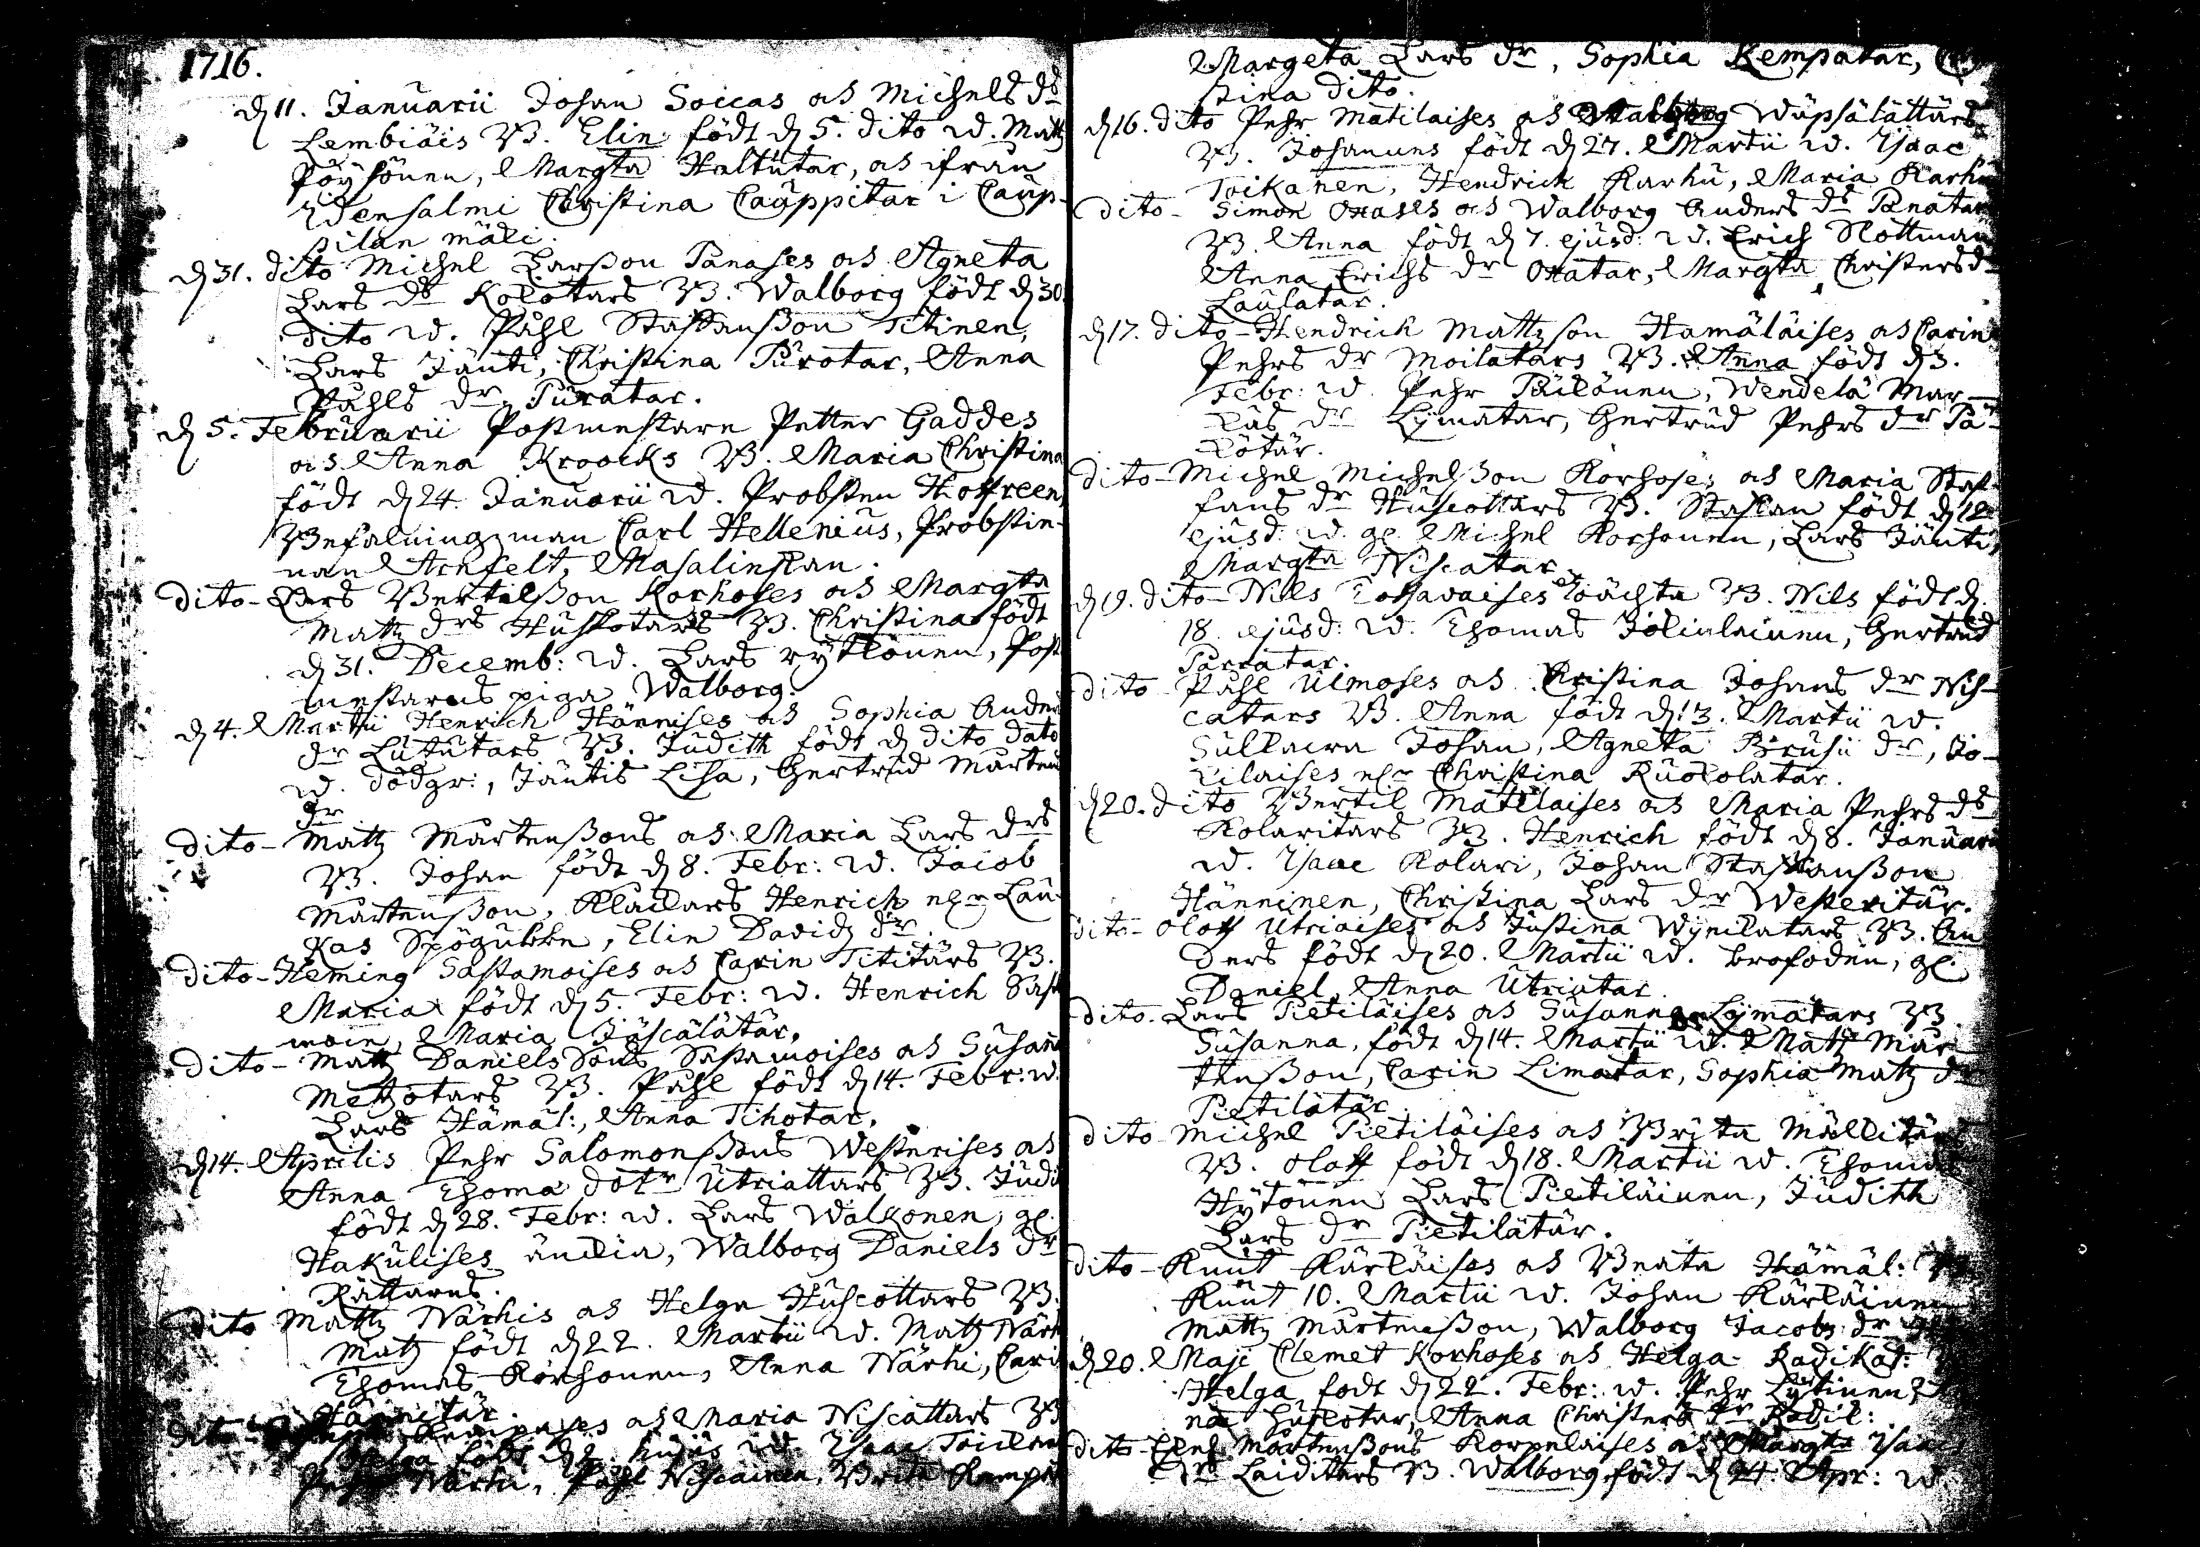 1716.
d 11. Januarii Johan Soicas as Michels dr
Lembiäis B. Elin född d 5. dito w. Matz
Pöysönen, Margta Haltutar, as ifrån
Idensalmi Christina Cauppitar i Caup-
pilan mäki.
d 31. dito Michel Larsson Panases as Agneta
Lars dr Kolotars B. Walborg född d 30.
dito w. Påhl Staffansson Titinen,
Lars Jänti, Christina Purotar, Anna
Påhls dr Puratar.
d 5. Februarii Postmestare Petter Gaddes
as Anna Kroocks B. Maria Christina
född d 24. Januarii w. Probsten
Befalningzman Carl Hellenius, Probstin-
nan Arnfelt, Masalinskan.
dito - Lars Bertelsson Korhoses as Margta
Matz drs Huskotars B. Christina född
d 31. Decemb: w. Lars Rytkönen, Post
mestarens piga Walborg.
d 4. Martii Henrich Hännises as Sophia Anders
dr Lututars B. Judith född d dito dato
w. dödgr:, Jäntis Lisa, Gertrud Mårtens
dr
dito - Matz Mårtenssons as Maria Lars drs
B. Johan född d 8. Febr: w. Jacob
Mårtensson, Klackars Henrich Lau-
kas, Elin Davidz dr.
dito - Heming Sastamoises as Carin Tititärs B.
Maria född d 5. Febr: w. Henrich Sast
moin, Maria Jäscälätär.
dito - Matz Daniels Sons Sastamoises as Susan
Metzotars B. Påhl född d 14. Febr: w.
Lars Hämäl:, Anna Tihotar.
d 14. Aprilis Pehr Salomonssons Westerises as
Anna Thoma dotr Utriattars B. Judi
född d 28. Febr: w. Lars Walkonen, gl.
Hakulises änckia, Walborg Daniels dr
Rättares.
dito Matz Närhis as Helga Huscottars B.
Matz född d 22. Martii w. Matz Närh
Thomas Korhonen, Anna Närhi, Cari
Hannitär.
dito - Kempases as Maria Niscattars B
Helga född d 2. hujus w. Isaac Toick
Pehr Närhi, Påhl Niscainen, Brita Kempa
Margeta Lars dr, Sophia Kempatar,
stina dito.
d 16. dito Pehr Matilaises as Walborg Wäpsälättärs
B. Johannes född d 27. Martii w. Isaac
Toikanen, Hendrick Karhu, Maria Karhu
dito - Simon Oxases as Walborg Anders dr Panatar
B. Anna född d 7. ejusd: w. Erich Slottman
Anna Erichs dr Oxatar, Margta Christers dr
Laulatar.
d 17. dito - Hendrich Mattzson Hamäläises as Carin
Pehrs dr Moilatars B. Anna född d 3.
Febr: w. Pehr Päilönen, Wendela Mar-
kus dr Lymatar, Gertrud Pehrs dr Pä-
lötär.
dito - Michel Michelsson Korhoses as Maria Staf-
fans dr Huscottars B. Staffan född d 12
ejusd: w. gl. Michel Korhonen, Lars Jänti,
Margta Niscatar.
d 19. dito - Nils Tossavaises B. Nils född d.
18. ejusd: w. Thomas Jokinlainen, Gertrud
Parratar.
dito - Påhl Ulmoses as Christina Johans dr Nis-
catars B. Anna född d 13. Martii w.
Johan, Agneta Brusii dr, Jo-
kilaises Christina Ruokolatar.
d 20. dito Bertil Matilaises as Maria Pehrs dr
Kolaritars B. Henrich född d 8. Januari
w. Isaac Kolari, Johan Staffansson
Hänninen, Christina Lars dr Westeritär.
dito - Oloff Utriaises as Justina Wynilatars B. An
ders född d 20. Martii w. gl.
Daniel, Anna Utriatar.
dito - Lars Pietiläises as Susanna Lymatars B
Susanna, född d 14. Martii w. Matz Mår
tensson, Carin Limatar, Sophia Matz dr
Pietilätär.
dito Michel Pietiläises as Brita Mällitärs
B. Oloff född d 18. Martii w. Thomas
Hytönen Lars Pietiläinen, Judith
Lars dr Pietilätär.
dito - Knut Kärkäises as Beata Hämäl:
Knut 10. Martii w. Johan Kärkäinen
Mattz Mårtensson, Walborg Jacobs dr
d 20. Maji Clemet Korhoses as Helga Radikat:
Helga, född d 22. Febr: w. Pehr Lytinen
na Huskotar, Anna Christers dr Radik:
dito - Mårtenssons Korpelaises as Margta Isaac
dr Laiditars B. Walborg född d 24. Apr: w.